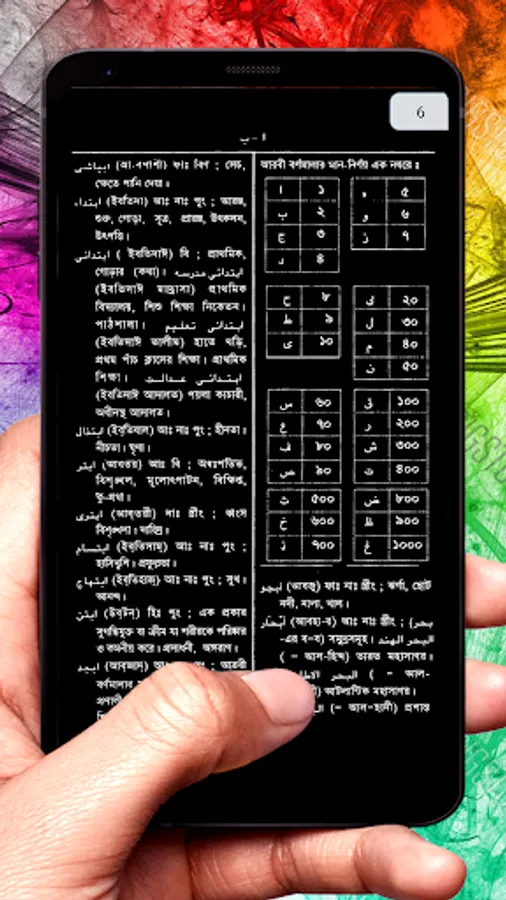 6
ا - ب
ابپاشی (আ-বপাশী) ফাঃ বিণ ; সেচ,
ক্ষেতে পানি দেয়া।
ابتداء (ইবতিদা) আঃ নাঃ পুং ; আরম্ভ,
শুরু, গোড়া, সূত্র, প্রারম্ভ, উৎকলন,
উৎপত্তি।
ابتدائی (ইবতিদাঈ) বি ; প্রাথমিক,
গোড়ার (কথা)। ابتدائی مدرسہ
(ইবতিদাঈ মাদ্রাসা) প্রাথমিক
বিদ্যালয়, শিশু শিক্ষা নিকেতন।
পাঠশালা। ابتدائی تعلیم
(ইবতিদাঈ তালীম) হাতে খড়ি,
প্রথম পাঁচ ক্লাসের শিক্ষা। প্রাথমিক
শিক্ষা। ابتدائی عدالت
(ইবতিদাঈ আদালত) পয়লা কাচারী,
অধীনস্থ আদালত।
ابتذال (ইবতিযাল) আঃ নাঃ পুং ; হীনতা।
নীচতা। ঘৃণা।
ابتر (আবতার) আঃ বি ; অধঃপতিত,
বিশৃঙ্খল, মূলোৎপাটন, বিক্ষিপ্ত,
কু-প্রথা।
ابتری (আব্‌তারী) নাঃ স্ত্রীং ; ধ্বংস
বিশৃঙ্খলা। দারিদ্র।
ابتسام (ইব্‌তিসাম্) আঃ নাঃ পুং ;
হাসিখুশি। প্রফুল্লতা।
ابتہاج (ইব্‌তিহাজ্) আঃ নাঃ পুং ; সুখ।
আনন্দ।
ابٹن (উব্‌টন্) হিঃ পুং ; এক প্রকার
সুগন্ধিযুক্ত যা ক্রীম যা শরীরকে পরিষ্কার
ও কমনীয় করে। প্রসাধনী, অঙ্গরাগ।
ابجد (আব্‌জাদ) আঃ নাঃ পুং ; আরবী
বর্ণমালার
প্রণালী
আরবী বর্ণমালার মান-নির্ণয় এক নজরে ঃ
ا ১ ہ ৫
ب ২ و ৬
ج ৩ ز ৭
د ৪
ح ৮ ک ২০
ط ৯ ل ৩০
ی ১০ م ৪০
ن ৫০
س ৬০ ق ১০০
ع ৭০ ر ২০০
ف ৮০ ش ৩০০
ص ৯০ ت ৪০০
ث ৫০০ ض ৮০০
خ ৬০০ ظ ৯০০
ذ ৭০০ غ ১০০০
ابجو (আবজু) ফাঃ নাঃ স্ত্রীং ; ঝর্ণা, ছোট
নদী, নালা, খাল।
ابحار (আবহা-র) আঃ নাঃ স্ত্রীং ; (بحر
-এর ব-ব) সমুদ্রসমূহ। البحر الهند
( = আল-হিন্দ) ভারত মহাসাগর।
البحر ( = আল-
আটলান্টিক মহাসাগর।
(= আল-হাদী) প্রশান্ত